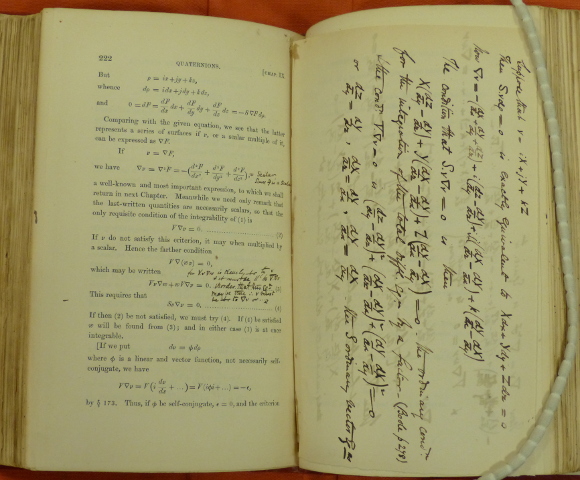 222
QUATERNIONS.
[CHAP. IX.
But ρ = ix + jy + kz,
whence dρ = idx + jdy + kdz,
and 0 = dF = dF/dx dx + dF/dy dy + dF/dz dz = −S∇F dρ.
Comparing with the given equation, we see that the latter
represents a series of surfaces if ν, or a scalar multiple of it,
can be expressed as ∇F.
If ν = ∇F,
we have ∇ν = ∇²F = −(d²F/dx² + d²F/dy² + d²F/dz²),
a well-known and most important expression, to which we shall
return in next Chapter. Meanwhile we need only remark that
the last-written quantities are necessarily scalars, so that the
only requisite condition of the integrability of (1) is
V∇ν = 0. (2)
If ν do not satisfy this criterion, it may when multiplied by
a scalar. Hence the farther condition
V∇(uν) = 0,
which may be written
Vν∇u + uV∇ν = 0. (3)
This requires that
Sν∇ν = 0. (4)
If then (2) be not satisfied, we must try (4). If (4) be satisfied
u will be found from (3); and in either case (1) is at once
integrable.
[If we put dν = φdρ
where φ is a linear and vector function, not necessarily self-
conjugate, we have
V∇ν = V(i dν/dx + ...) = V(iφi + ...) = −ε,
by § 173. Thus, if φ be self-conjugate, ε = 0, and the criterion
Suppose that ν = iX + jY + kZ
then Sνdρ = 0 is exactly equivalent to Xdx + Ydy + Zdz = 0
now ∇ν = −(dX/dx + dY/dy + dZ/dz) + i(dZ/dy − dY/dz) + j(dX/dz − dZ/dx) + k(dY/dx − dX/dy)
The condition that Sν∇ν = 0 is then
X(dZ/dy − dY/dz) + Y(dX/dz − dZ/dx) + Z(dY/dx − dX/dy) = 0. the ordinary condn
for the integration of the total diffl eqn by a factor - (Boole p 278)
the condn V∇ν = 0 is (dZ/dy − dY/dz)² + (dX/dz − dZ/dx)² + (dY/dx − dX/dy)² = 0
or dZ/dy = dY/dz, dX/dz = dZ/dx, dY/dx = dX/dy. the 3 ordinary